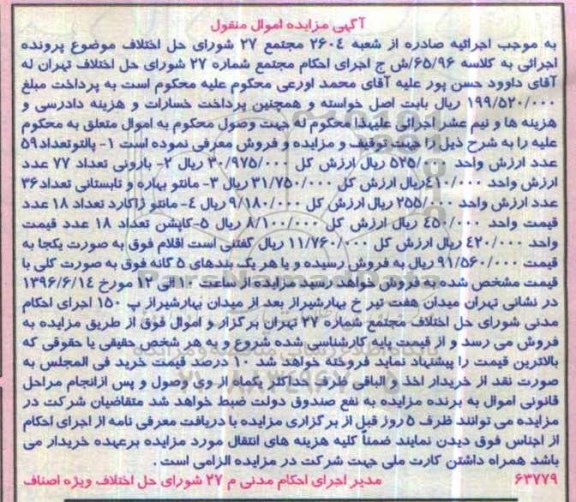 آگهی مزایده اموال منقول
به موجب اجرائیه صادره از شعبه ۲۶۰۴ مجتمع ۲۷ شورای حل اختلاف موضوع پرونده
اجرائی به کلاسه ۶۵/۹۶/ش ج اجرای احکام مجتمع شماره ۲۷ شورای حل اختلاف تهران له
آقای داوود حسن پور علیه آقای محمد اورعی محکوم علیه محکوم است به پرداخت مبلغ
۱۹۹/۵۲۰/۰۰۰ ریال بابت اصل خواسته و همچنین پرداخت خسارات و هزینه دادرسی و
هزینه ها و نیم عشر اجرائی علیهذا محکوم له جهت وصول محکوم به اموال متعلق به محکوم
علیه را به شرح ذیل را جهت توقیف و مزایده و فروش معرفی نموده است ۱- پالتو تعداد ۵۹
عدد ارزش واحد ۵۲۵/۰۰۰ ریال ارزش کل ۳۰/۹۷۵/۰۰۰ ریال ۲- بارونی تعداد ۷۷ عدد
ارزش واحد ۴۱۰/۰۰۰ ریال ارزش کل ۳۱/۷۵۰/۰۰۰ ریال ۳- مانتو بهاره و تابستانی تعداد ۳۶
عدد ارزش واحد ۲۵۵/۰۰۰ ریال ارزش کل ۹/۱۸۰/۰۰۰ ریال ۴- مانتو ژاکارد تعداد ۱۸ عدد
قیمت واحد ۴۵۰/۰۰۰ ریال ارزش کل ۸/۱۰۰/۰۰۰ ریال ۵- کاپشن تعداد ۱۸ عدد قیمت
واحد ۴۲۰/۰۰۰ ریال ارزش کل ۱۱/۷۶۰/۰۰۰ ریال گفتنی است اقلام فوق به صورت یکجا به
قیمت ۹۱/۵۶۰/۰۰۰ ریال به فروش رسیده و یا هر یک بندهای ۵ گانه فوق به صورت کلی با
قیمت مشخص شده به فروش خواهد رسید مزایده از ساعت ۱۰ الی ۱۲ مورخ ۱۳۹۶/۶/۱۴
در نشانی تهران میدان هفت تیر خ بهارشیراز بعد از میدان بهارشیراز پ ۱۵۰ اجرای احکام
مدنی شورای حل اختلاف مجتمع شماره ۲۷ تهران برگزار و اموال فوق از طریق مزایده به
فروش می رسد و از قیمت پایه کارشناسی شده شروع و به هر شخص حقیقی یا حقوقی که
بالاترین قیمت را پیشنهاد نماید فروخته خواهد شد ۱۰ درصد قیمت خرید فی المجلس به
صورت نقد از خریدار اخذ و الباقی ظرف حداکثر یکماه از وی وصول و پس ازانجام مراحل
قانونی اموال به برنده مزایده به نفع صندوق دولت ضبط خواهد شد متقاضیان شرکت در
مزایده می توانند ظرف ۵ روز قبل از برگزاری مزایده با دریافت معرفی نامه از اجرای احکام
از اجناس فوق دیدن نمایند ضمناً کلیه هزینه های انتقال مورد مزایده برعهده خریدار می
باشد همراه داشتن کارت ملی جهت شرکت در مزایده الزامی است.
۶۳۷۷۹ مدیر اجرای احکام مدنی م ۲۷ شورای حل اختلاف ویژه اصناف